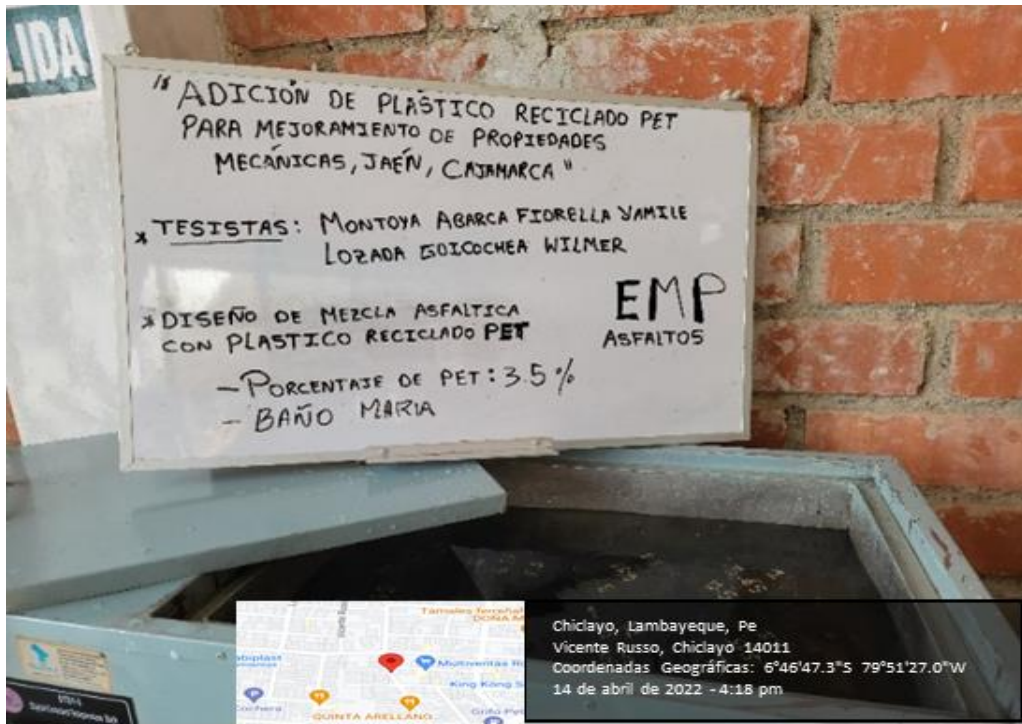 LIDA
"ADICIÓN DE PLÁSTICO RECICLADO PET
PARA MEJORAMIENTO DE PROPIEDADES
MECÁNICAS, JAÉN, CAJAMARCA"
* TESISTAS: MONTOYA ABARCA FIORELLA YAMILE
LOZADA GOICOCHEA WILMER
* DISEÑO DE MEZCLA ASFALTICA
CON PLASTICO RECICLADO PET
- PORCENTAJE DE PET: 3.5%
- BAÑO MARIA
EMP
ASFALTOS
Tamales ferreñaf
DOÑA M
abiplast
Multiventas R
King Kong S
Cochera
QUINTA ARELLANO
Grifo Pet
Chiclayo, Lambayeque, Pe
Vicente Russo, Chiclayo 14011
Coordenadas Geográficas: 6°46'47.3"S 79°51'27.0"W
14 de abril de 2022 - 4:18 pm